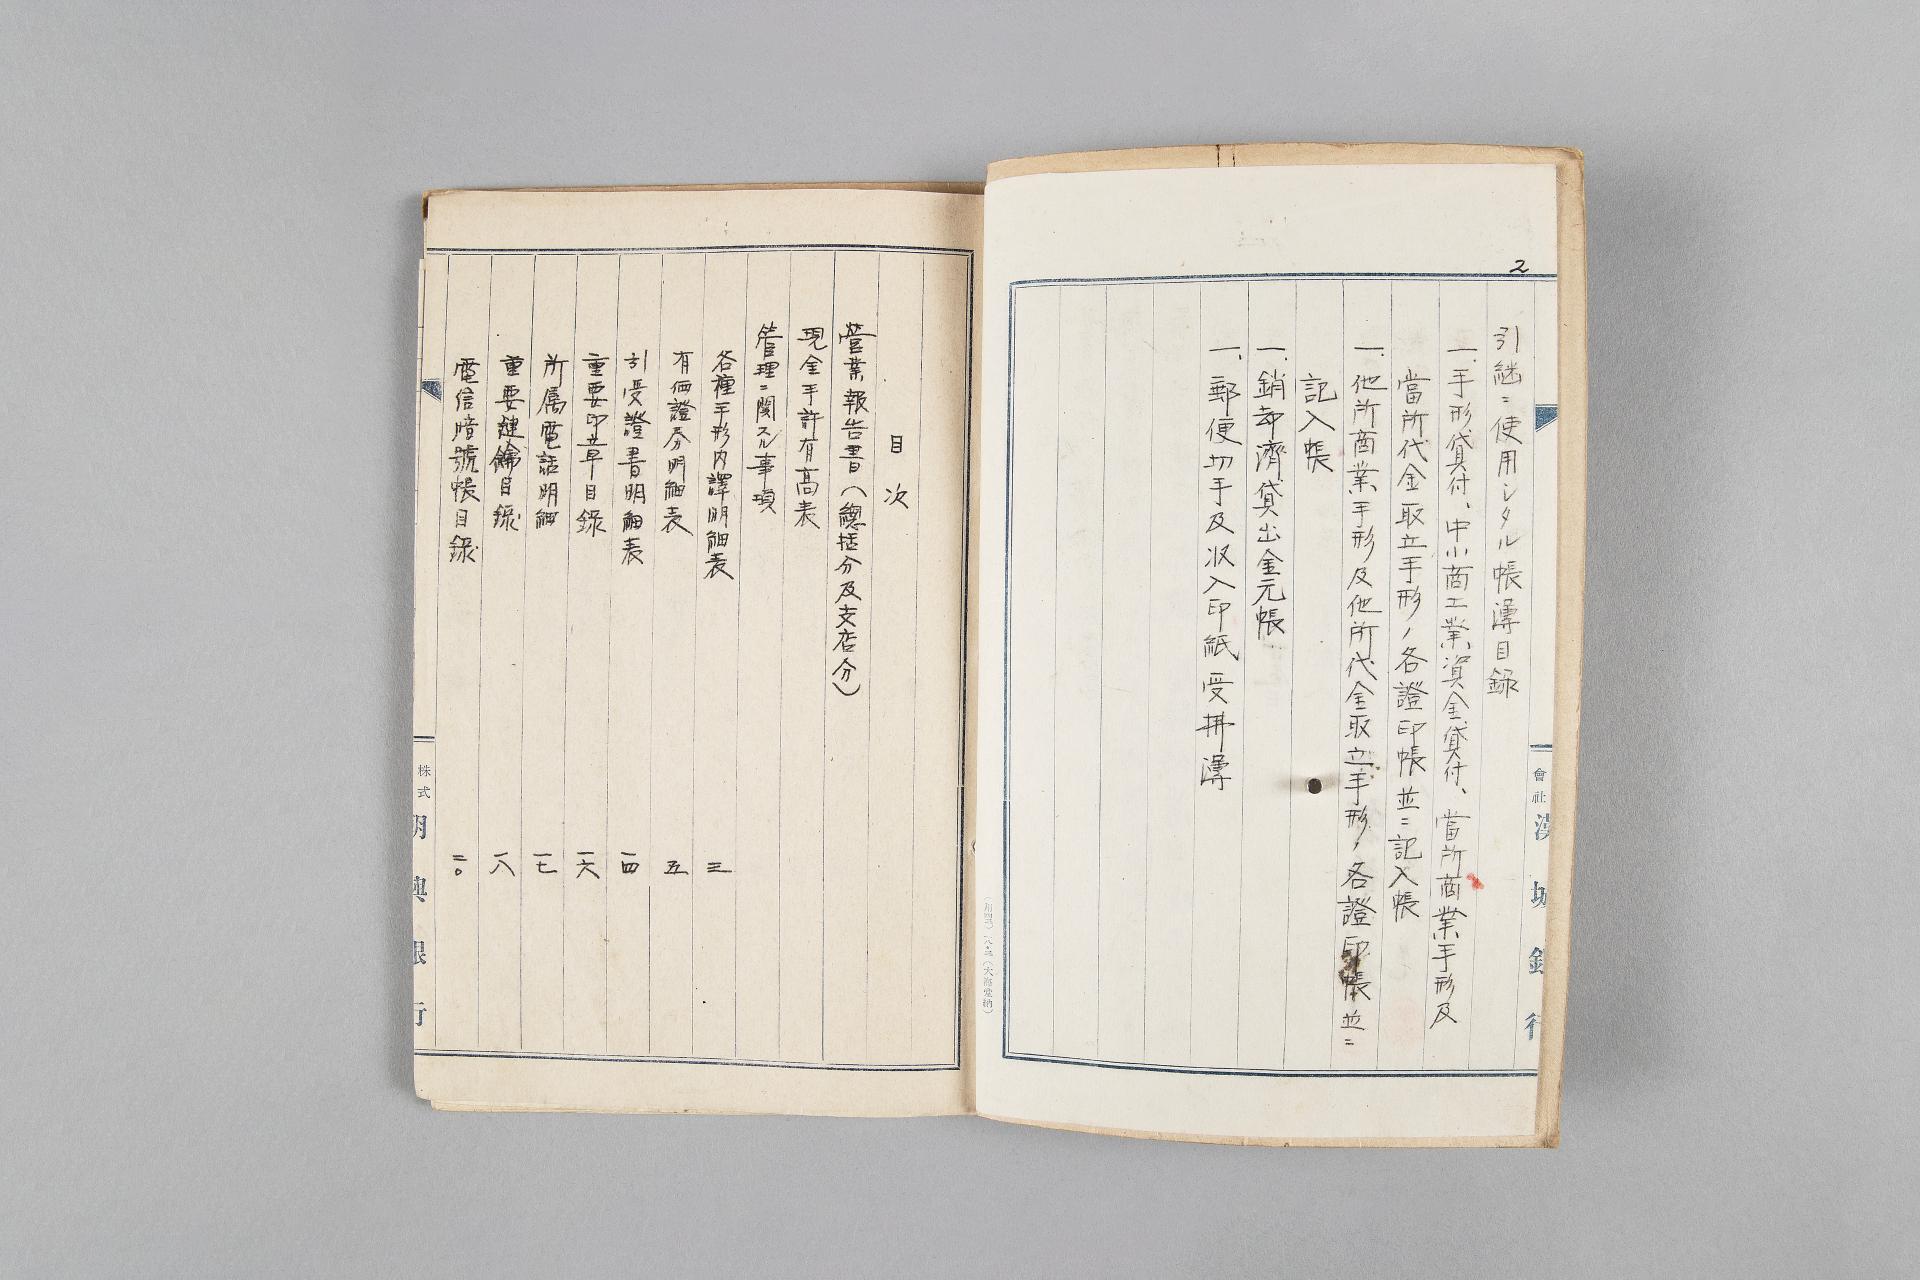 2
引継ニ使用シタル帳簿目録
一、手形貸付、中小商工業資金貸付、當所商業手形及
當所代金取立手形ノ各證印帳並ニ記入帳
一、他所商業手形及他所代金取立手形ノ各證印帳並ニ
記入帳
一、銷却濟貸出金元帳
一、郵便切手及収入印紙受拂簿
會社漢城銀行
目次
営業報告書(總括分及支店分)
現金手許有高表
管理ニ関スル事項
各種手形内譯明細表 三
有価證券明細表 五
引受證書明細表 一四
重要印章目錄 一六
所属電話明細 一七
重要鍵鑰目錄 一八
電信暗號帳目錄 二〇
株式
興銀行